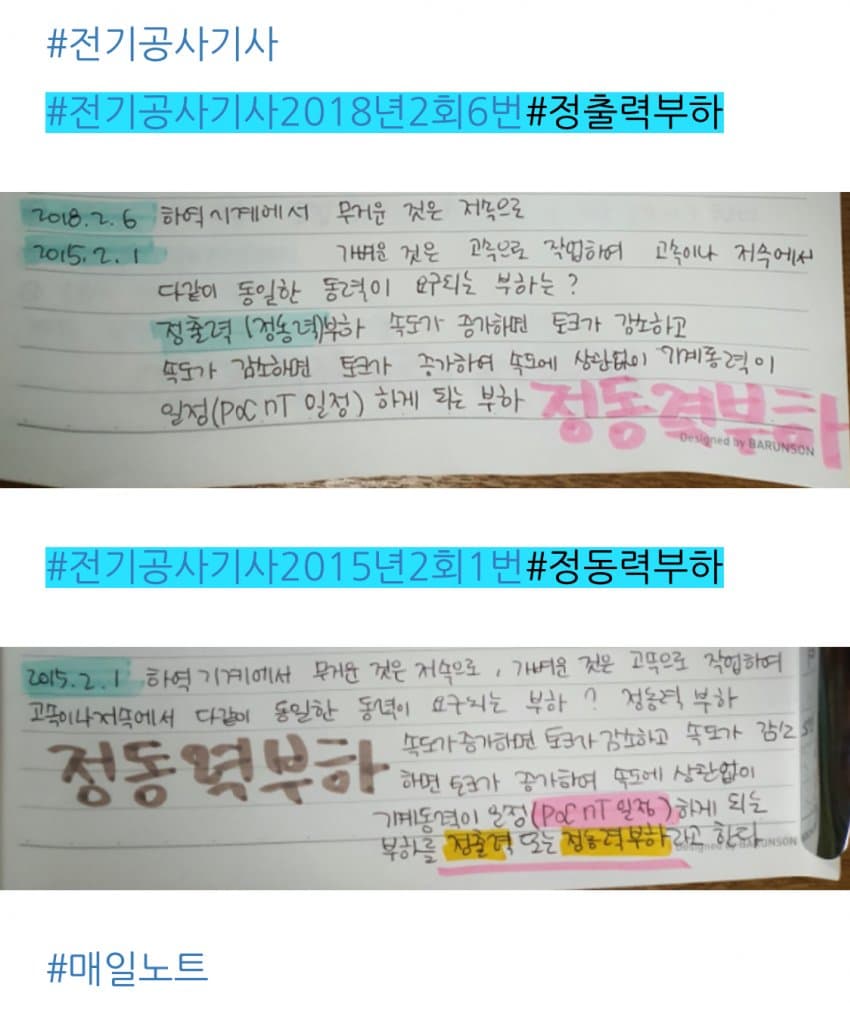 #전기공사기사
#전기공사기사2018년2회6번#정출력부하
2018.2.6 하역시계에서 무거운 것은 저속으로
2015.2.1 가벼운 것은 고속으로 작업하여 고속이나 저속에서
다같이 동일한 동력이 요구되는 부하는?
정출력(정동력)부하 속도가 증가하면 토크가 감소하고
속도가 감소하면 토크가 증가하여 속도에 상관없이 기계동력이
일정(P∝nT 일정) 하게 되는 부하 정동력부하
Designed by BARUNSON
#전기공사기사2015년2회1번#정동력부하
2015.2.1 하역기계에서 무거운 것은 저속으로, 가벼운 것은 고속으로 작업하여
고속이나 저속에서 다같이 동일한 동력이 요구되는 부하? 정동력 부하
정동력부하 속도가 증가하면 토크가 감소하고 속도가 감소
하면 토크가 증가하여 속도에 상관없이
기계동력이 일정(P∝nT 일정)하게 되는
부하를 정출력 또는 정동력부하라고 한다
Designed by BARUNSON
#매일노트